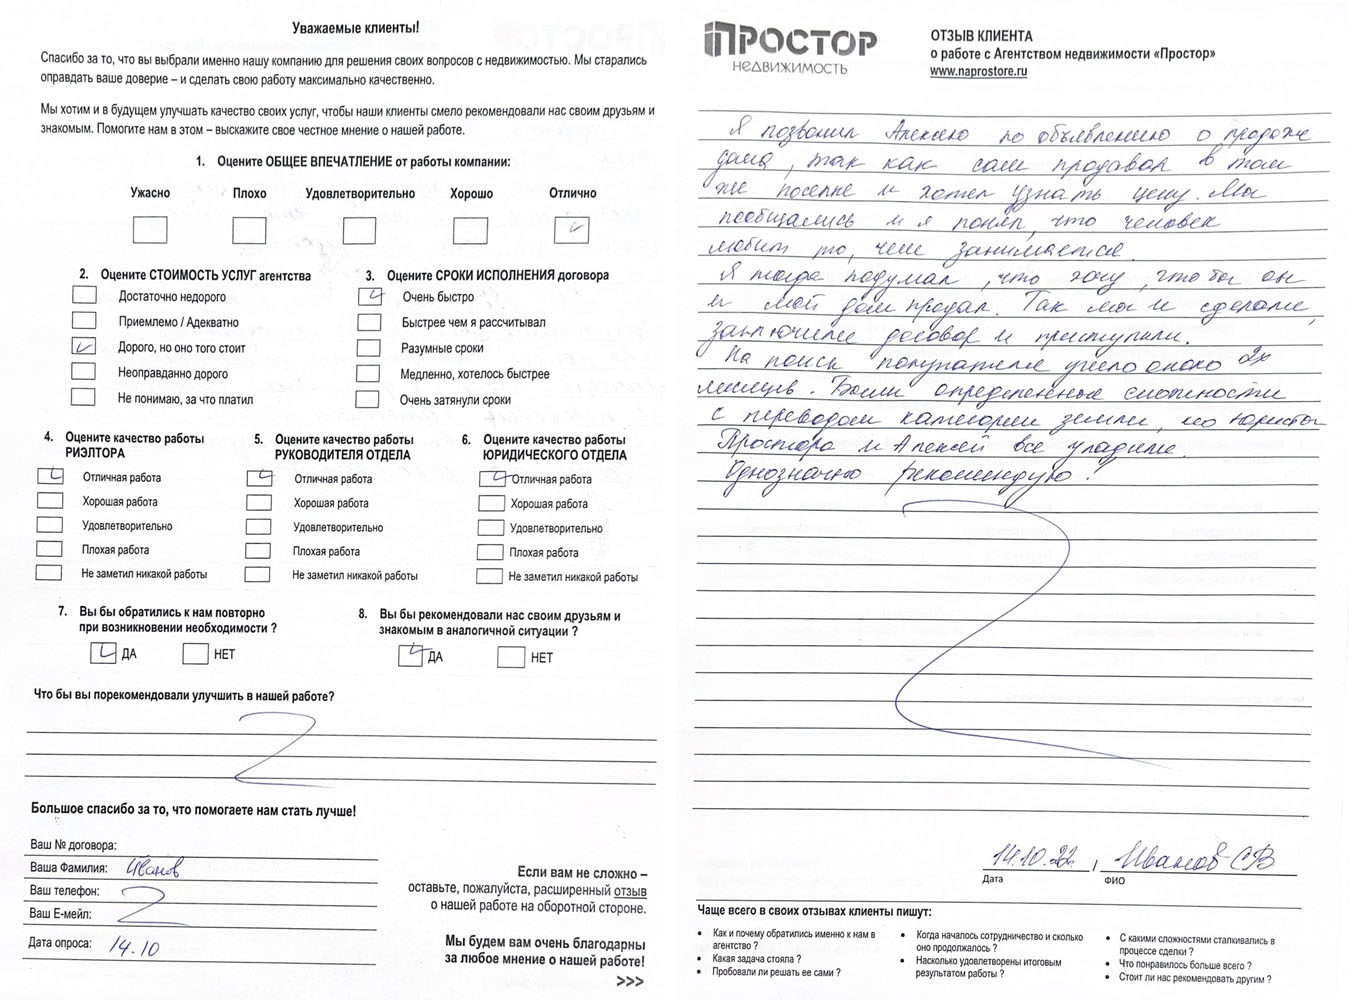 Уважаемые клиенты!
Спасибо за то, что вы выбрали именно нашу компанию для решения своих вопросов с недвижимостью. Мы старались
оправдать ваше доверие – и сделать свою работу максимально качественно.
Мы хотим и в будущем улучшать качество своих услуг, чтобы наши клиенты смело рекомендовали нас своим друзьям и
знакомым. Помогите нам в этом – выскажите свое честное мнение о нашей работе.
1. Оцените ОБЩЕЕ ВПЕЧАТЛЕНИЕ от работы компании:
Ужасно Плохо Удовлетворительно Хорошо Отлично
2. Оцените СТОИМОСТЬ УСЛУГ агентства
Достаточно недорого
Приемлемо / Адекватно
Дорого, но оно того стоит
Неоправданно дорого
Не понимаю, за что платил
3. Оцените СРОКИ ИСПОЛНЕНИЯ договора
Очень быстро
Быстрее чем я рассчитывал
Разумные сроки
Медленно, хотелось быстрее
Очень затянули сроки
4. Оцените качество работы
РИЭЛТОРА
Отличная работа
Хорошая работа
Удовлетворительно
Плохая работа
Не заметил никакой работы
5. Оцените качество работы
РУКОВОДИТЕЛЯ ОТДЕЛА
Отличная работа
Хорошая работа
Удовлетворительно
Плохая работа
Не заметил никакой работы
6. Оцените качество работы
ЮРИДИЧЕСКОГО ОТДЕЛА
Отличная работа
Хорошая работа
Удовлетворительно
Плохая работа
Не заметил никакой работы
7. Вы бы обратились к нам повторно
при возникновении необходимости ?
ДА НЕТ
8. Вы бы рекомендовали нас своим друзьям и
знакомым в аналогичной ситуации ?
ДА НЕТ
Что бы вы порекомендовали улучшить в нашей работе?
Большое спасибо за то, что помогаете нам стать лучше!
Ваш № договора:
Ваша Фамилия: Иванов
Ваш телефон:
Ваш E-мейл:
Дата опроса: 14.10
Если вам не сложно –
оставьте, пожалуйста, расширенный отзыв
о нашей работе на оборотной стороне.
Мы будем вам очень благодарны
за любое мнение о нашей работе!
>>>
ПРОСТОР
НЕДВИЖИМОСТЬ
ОТЗЫВ КЛИЕНТА
о работе с Агентством недвижимости «Простор»
www.naprostore.ru
Я позвонил Алексею по объявлению о продаже
дома, так как сам продавал в том
же поселке и хотел узнать цену. Мы
пообщались и я понял, что человек
любит то, чем занимается.
Я тогда подумал, что хочу, чтобы он
и мой дом продал. Так мы и сделали,
заключили договор и приступили.
На поиск покупателя ушло около 2х
месяцев. Были определенные сложности
с переводом категории земли, но юристы
Простора и Алексей все уладили.
Однозначно рекомендую!
14.10.22 , Иванов С В
Дата ФИО
Чаще всего в своих отзывах клиенты пишут:
• Как и почему обратились именно к нам в
агентство ?
• Какая задача стояла ?
• Пробовали ли решать ее сами ?
• Когда началось сотрудничество и сколько
оно продолжалось ?
• Насколько удовлетворены итоговым
результатом работы ?
• С какими сложностями сталкивались в
процессе сделки ?
• Что понравилось больше всего ?
• Стоит ли нас рекомендовать другим ?